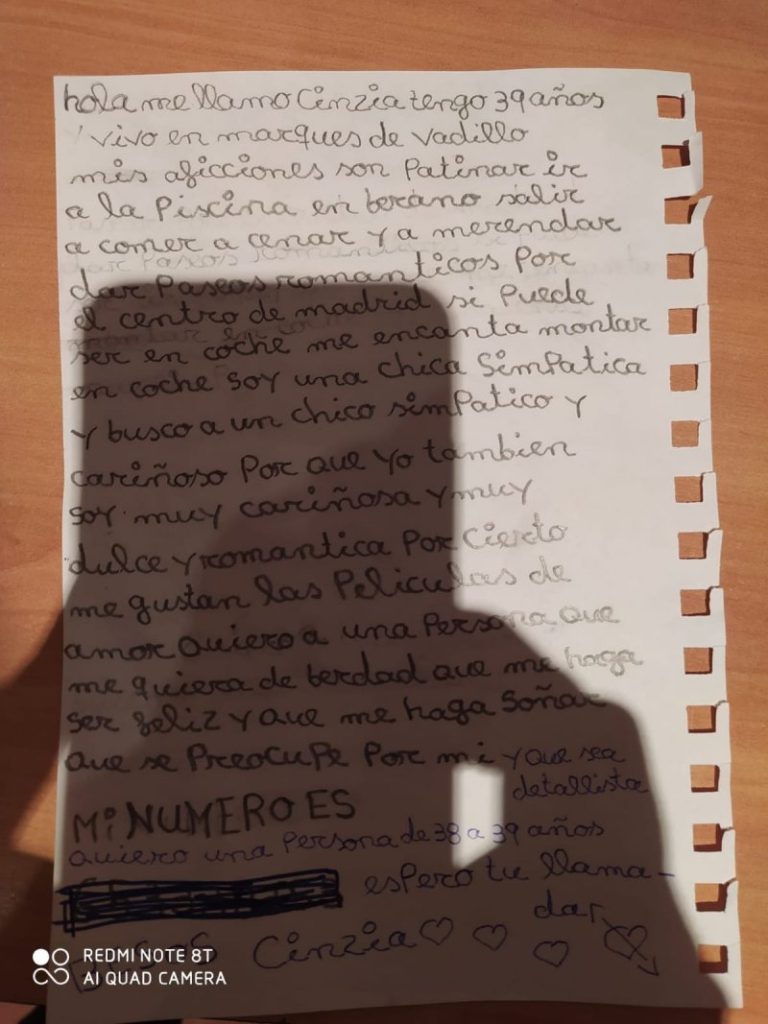 hola me llamo Cinzia tengo 39 años
vivo en marques de vadillo
mis aficciones son Patinar ir
a la Piscina en berano salir
a comer a cenar y a merendar
dar Paseos romanticos Por
el centro de madrid si Puede
ser en coche me encanta montar
en coche soy una chica Simpatica
y busco a un chico simPatico y
cariñoso Por que yo tambien
soy muy cariñosa y muy
dulce y romantica Por cierto
me gustan las Peliculas de
amor quiero a una Persona que
me quiera de berdad que me haga
ser feliz y que me haga soñar
que se PreocuPe Por mi y que sea
detallista
Mi NUMERO ES
quiero una Persona de 38 a 39 años
esPero tu llama-
da
Cinzia
REDMI NOTE 8T
AI QUAD CAMERA